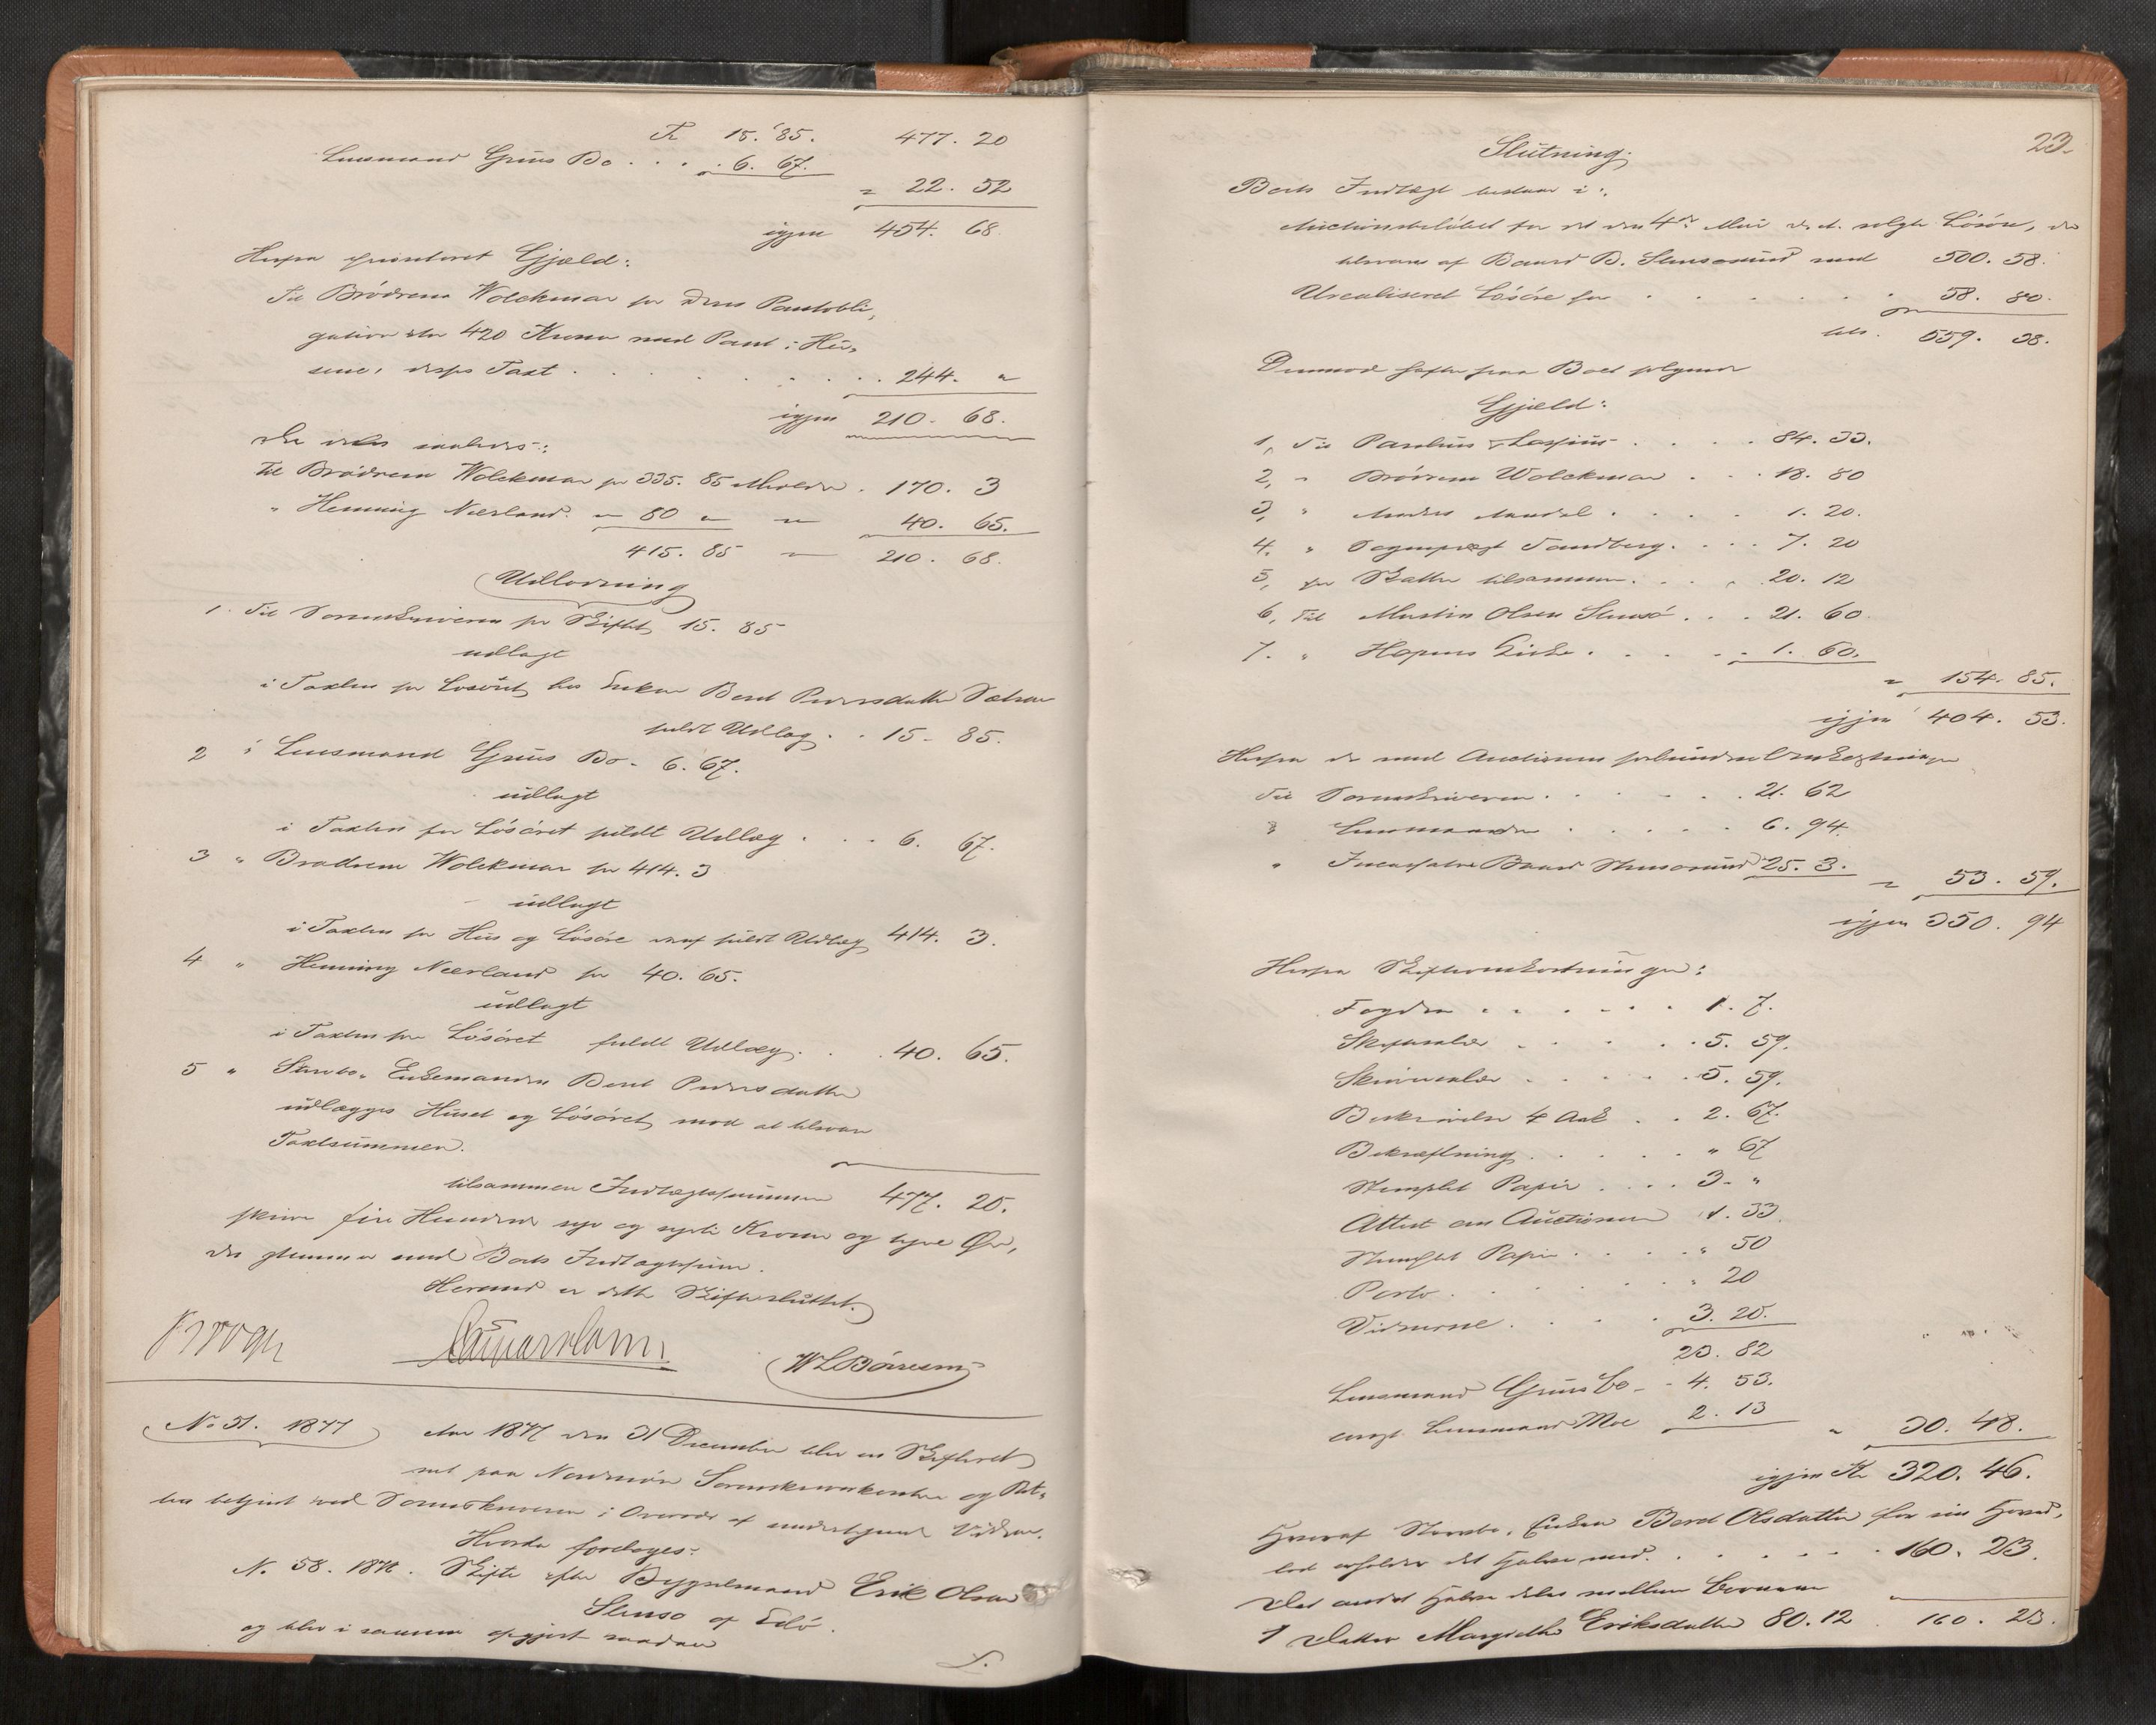 K 15. 85. 477. 20
Lensmand Grüs Bo . . . 6. 67.
" 22. 52
igjen 454. 68
Herfra prioriteret Gjæld:
Til Brödrene Wolckmar for deres Pantobli-
gation stor 420 Kroner med Pant i Hü-
sene, disses Taxt . . . 244. "
igjen 210. 68.
der deles saaledes:
til Brödrene Wolckmar for 335. 85 Andelen . 170. 3
" Henning Nerland " 80 " " 40. 65.
415. 85 " 210. 68.
Udlodning
1. Til Sorenskriveren for Skiftet 15. 85
udlagt
i Taxten for Lösöret hos Enken Beret Pedersdatter Sætran
fuldt Udlæg . . 15. 85.
2 " Lensmand Grüs Bo. 6. 67.
udlagt
i Taxten for Lösöret fuldt Udlæg . . . 6. 67.
3 " Brødrene Wolckmar for 414. 3
udlagt
i Taxten for Hüs og Lösöre fuldt Udlæg 414. 3.
4 " Henning Nerland for 40. 65.
udlagt
i Taxten for Lösöret fuldt Udlæg . . 40. 65.
5 " Stervbo- Enkemanden Beret Pedersdatter
udlægges Hüset og Lösöret mod at tilsvare
Taxtsummen.
tilsammen Indtægtssummen 477. 20.
skriver fire Hundrede syv og sytti Kroner og tyve Øre,
der stemmer med Boets Indtægtssum.
Hermed er dette Skifte sluttet.
Krogh
W L Börresen
No 31. 1877 Aar 1877 den 31 December blev en Skifteret
sat paa Nordmöre Sorenskriverkontor og Ret-
ten betjent ved Sorenskriveren i Overvær af undertegnede Vidner.
Hvorda foretoges:
N. 58. 1876. Skifte efter Bygselmand Erik Olsen
Stensö af Edö.
og blev i samme opgjort saadan
S.
23.
Slutning:
Boets Indtægt bestaar i:
Auctionsbelöbet for det den 4de Mai d. A. solgte Lösöre, der
tilsvares af Baard B. Stensösund med 500. 58.
Urealiseret Lösöre for . . . . . 58. 80.
tils. 559. 38.
Derimod hefter paa Boet fölgende
Gjæld:
1, Til Parelius & Lossius . . . . 84. 33.
2, " Brödrene Wolckmar . . . 18. 80
3, " Anders Aandal . . . . 1. 20.
4. " Sogneprest Sandberg . . . 7. 20
5, for Skatter tilsammen . . . 20. 12
6, Til Martin Olsen Stensö . . . 21. 60
7. " Hopens Kirke . . . . 1. 60.
" 154. 85.
igjen 404. 53.
Herfra de med Auctionen forbundne Omkostninger
Til Sorenskriveren . . . . 21. 62
" Lensmanden . . . . 6. 94.
" Incassator Baard Stensösund 25. 3.
" 53. 59.
igjen 350. 94
Herfra Skifteomkostninger:
Fogden . . . . . 1. 7.
Skiftesalær . . . . . 5. 59.
Skriversalær . . . . 5. 59.
Beskrivelse 4 Ark . . 2. 67.
Bekræftning . . . . " 67
Stemplet Papir . . . . 3. "
Attest om Auctionen 1. 33.
Stemplet Papir . . . . " 50
Porto . . . . . " 20
Vidnerne . . . . 3. 20.
23. 82
Lensmand Grüs Bo . . 4. 53.
const. Lensmand Moe 2. 13
" 30. 48.
igjen Kr 320. 46.
Hvoraf Stervbo. Enken Beret Olsdatter for sin Hoved-
lod erholder det Halve med . . . . . 160. 23.
Det andet Halve deles mellem Börnene
1 Datter Margrethe Eriksdatter 80. 12 . 160. 23.